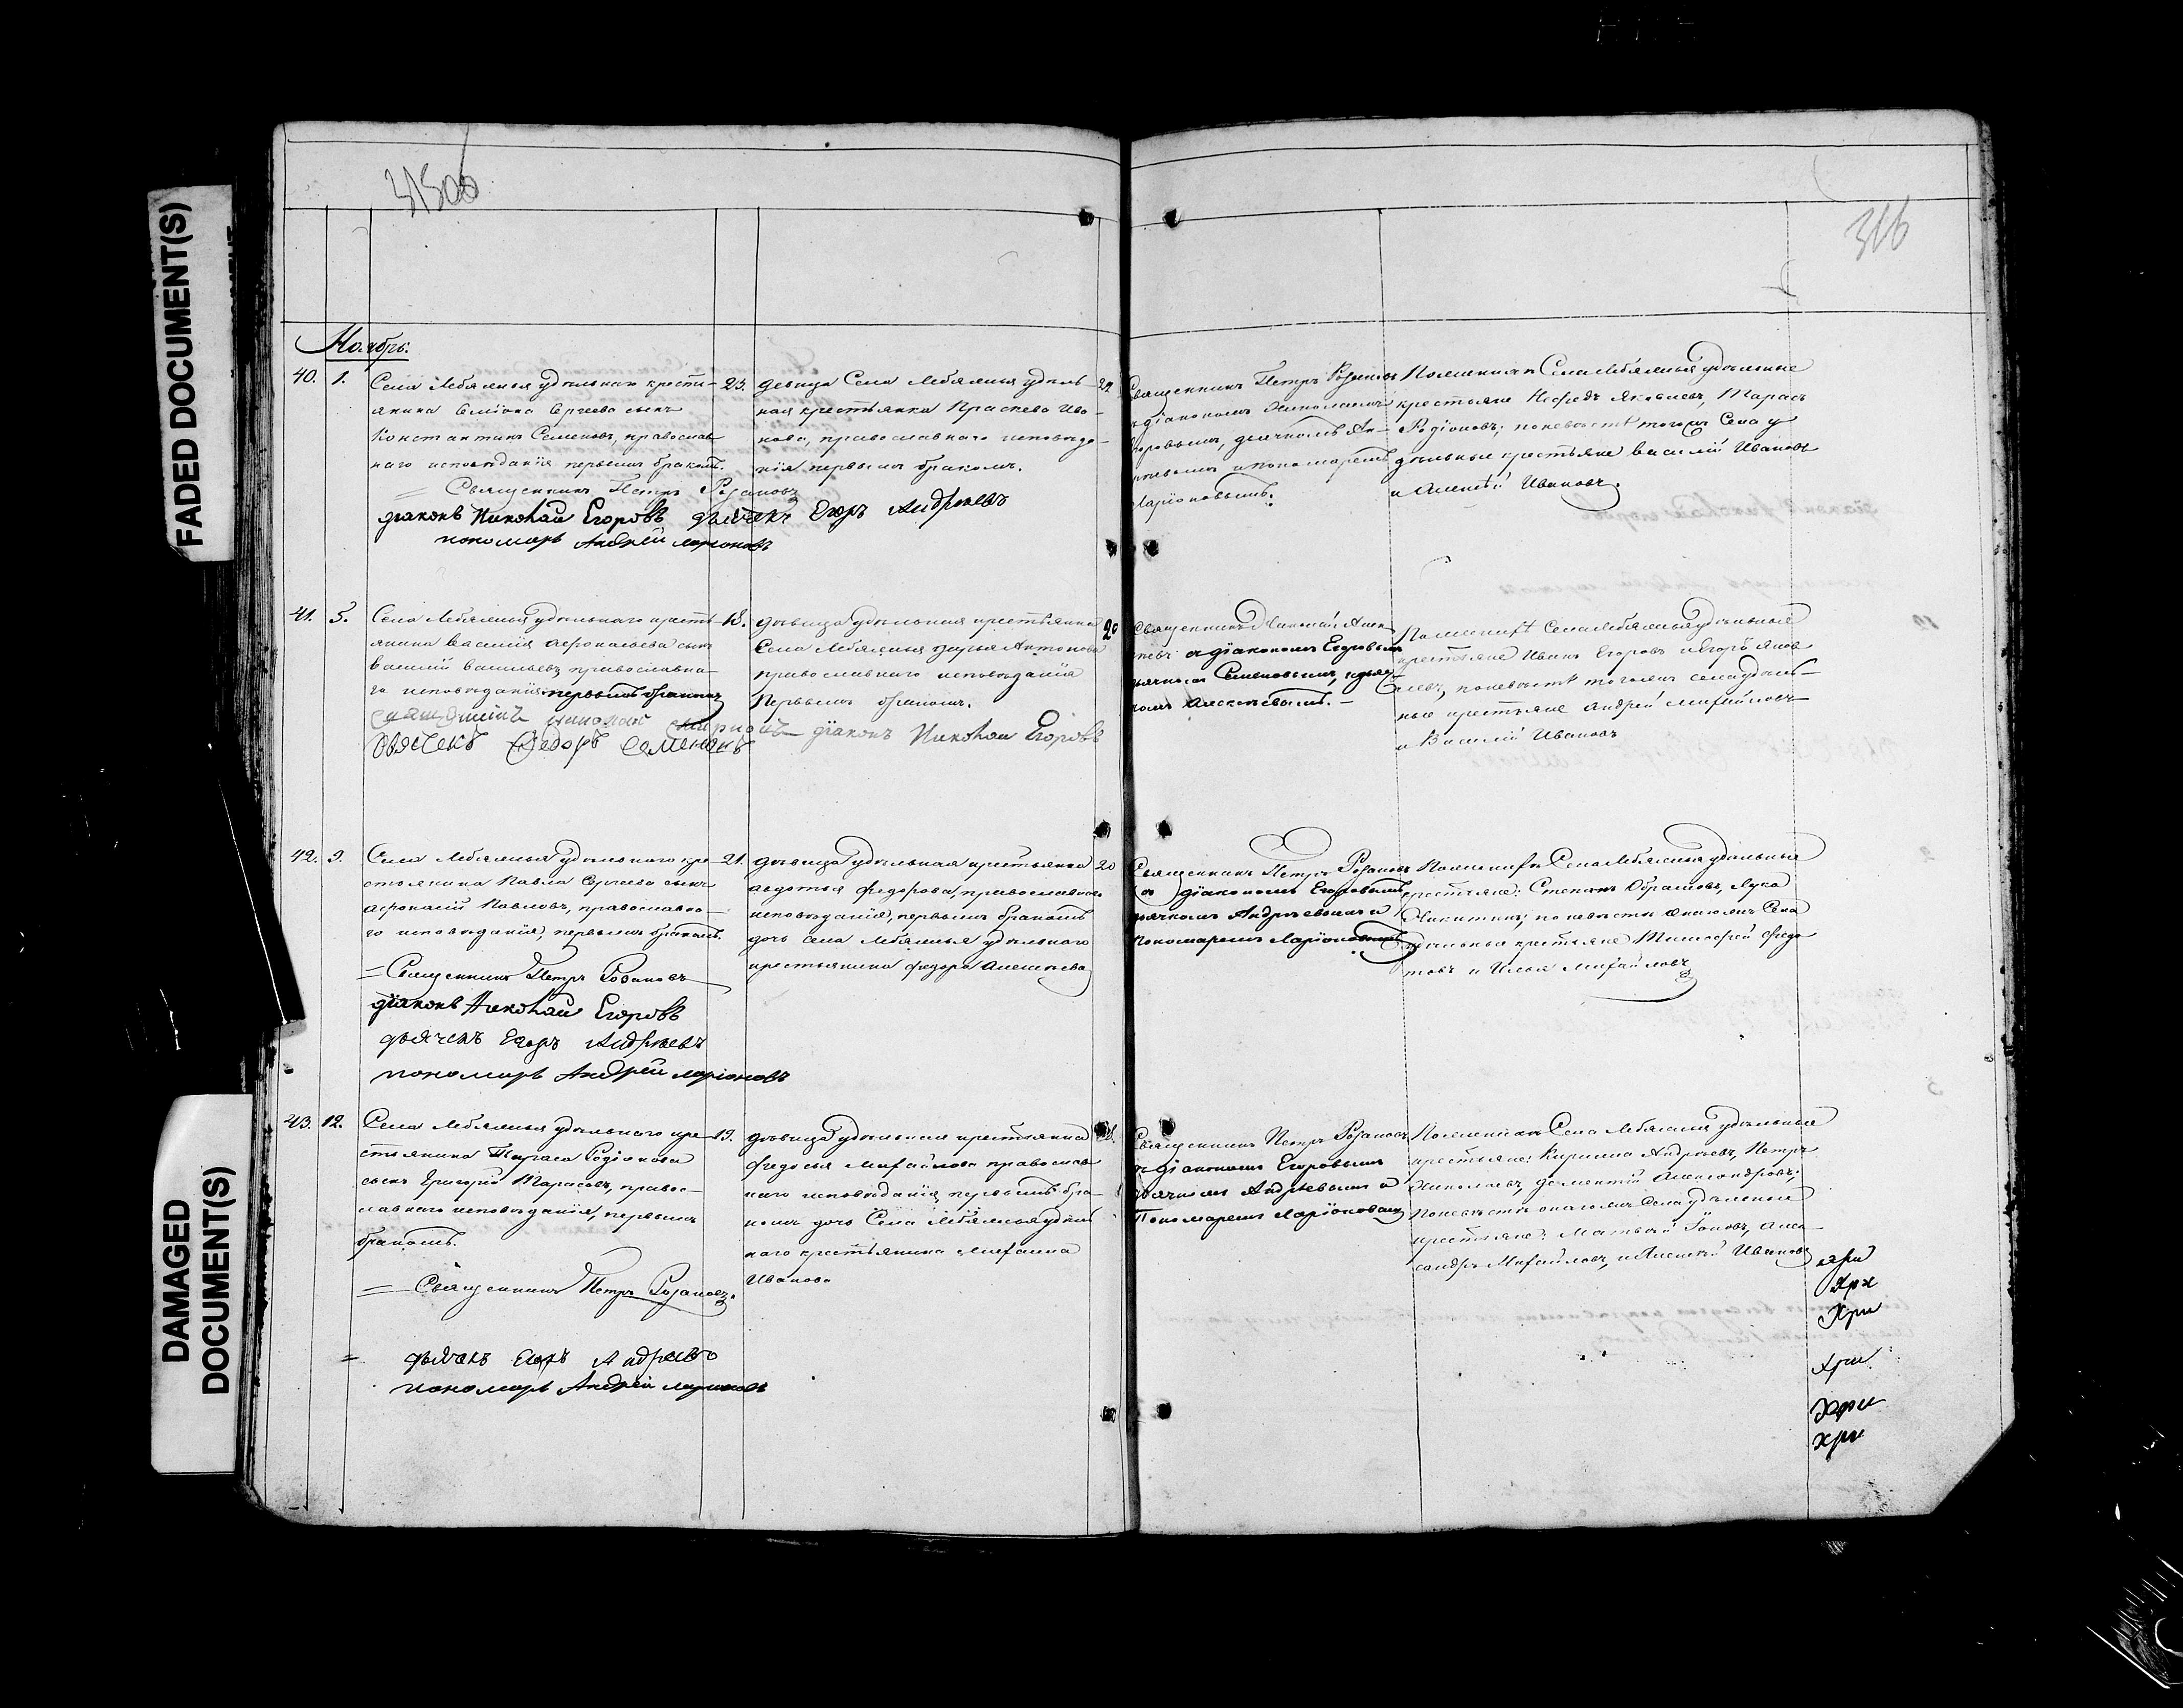 FADED DOCUMENT(S)
DAMAGED
DOCUMENT(S)
316
Ноябрь.
40. 1.
Села Лебяжья удѣльнаго крестья-
янина Семіона Сергеева сынъ
Константинъ Семеновъ, православ
наго исповѣданія первымъ бракомъ.
Священникъ Петръ Розановъ
діаконъ Николай Егоровъ дьячекъ Егоръ Андреевъ
пономарь Андрей Ларіоновъ
23.
девица Села Лебяжья удѣль
ная крестьянка Праскева Ива-
нова, православнаго исповѣда-
нія первымъ бракомъ.
Священникъ Петръ Розановъ
діакономъ Николаемъ
Егоровымъ, дьячкомъ Ан-
дреевымъ и пономаремъ
Ларіоновымъ.
По женихѣ Села Лебяжья удѣльные
крестьяне Яковлевъ, Тарасъ
Родіоновъ; по невѣстѣ тогожъ Села у
дѣльные крестьяне Василій Ивановъ
и Алексѣй Ивановъ.
41. 5.
Села Лебяжья удѣльнаго кресть
янина Василія сынъ
Василій Васильевъ православна-
го исповѣданія первымъ бракомъ
священникъ николай
дьячекъ Федоръ Семеновъ діаконъ Николай Егоровъ
18.
дѣвица удѣльная крестьянка
Села Лебяжья Дарья Антонова
православнаго исповѣданія
первымъ бракомъ.
20
Священникъ Николай
съ діакономъ Егоровымъ
дьячкомъ Семеновымъ,
Алексеевымъ.
По женихѣ Села Лебяжья удѣльные
крестьяне Иванъ Егоровъ и Егоръ Яков
левъ, по невѣстѣ тогожъ села удѣль-
ные крестьяне Андрей Михайловъ
и Василій Ивановъ
42. 9.
Села Лебяжья удѣльнаго кре
стьянина Павла Сергеева сынъ
Афонасій Павловъ, православно-
го исповѣданія, первымъ бракомъ.
Священникъ Петръ Розановъ
діаконъ Николай Егоровъ
дьячекъ Егоръ Андреевъ
пономарь Андрей Ларіоновъ
21.
дѣвица удѣльная крестьянка
Авдотья Федорова, православнаго
исповѣданія, первымъ бракомъ
дочь села Лебяжья удѣльнаго
крестьянина Федора Алексеева
20
Священникъ Петръ Розановъ
съ діакономъ Егоровымъ
дьячкомъ Андреевымъ и
пономаремъ Ларіоновымъ
По женихѣ Села Лебяжья удѣльные
крестьяне: Степанъ Абрамовъ, Лука
Никитинъ; по невѣсты Села
удѣльные крестьяне Тимофей Федо
товъ и Илья Михайловъ
43. 12.
Села Лебяжья удѣльнаго кре
стьянина Тараса Родіонова
сынъ Григорій Тарасовъ, правос-
лавнаго исповѣданія, первымъ
бракомъ.
Священникъ Петръ Розановъ.
дьячекъ Егоръ Андреевъ
пономарь Андрей Ларіоновъ
19.
дѣвица удѣльная крестьянка
Федосья Михайлова православ
наго исповѣданія первымъ бра-
комъ дочь Села Лебяжья удѣль
наго крестьянина Михаила
Иванова
Священникъ Петръ Розановъ
съ діакономъ Егоровымъ
дьячкомъ Андреевымъ и
Пономаремъ Ларіоновымъ
По женихѣ Села Лебяжья удѣльные
крестьяне: Кирилла Андреевъ, Петръ
Николаевъ, Дементій Александровъ;
По невѣстѣ Села удѣльные
крестьяне: Матвѣй Іоновъ, Алек-
сандръ Михайловъ, и Алексѣй Ивановъ